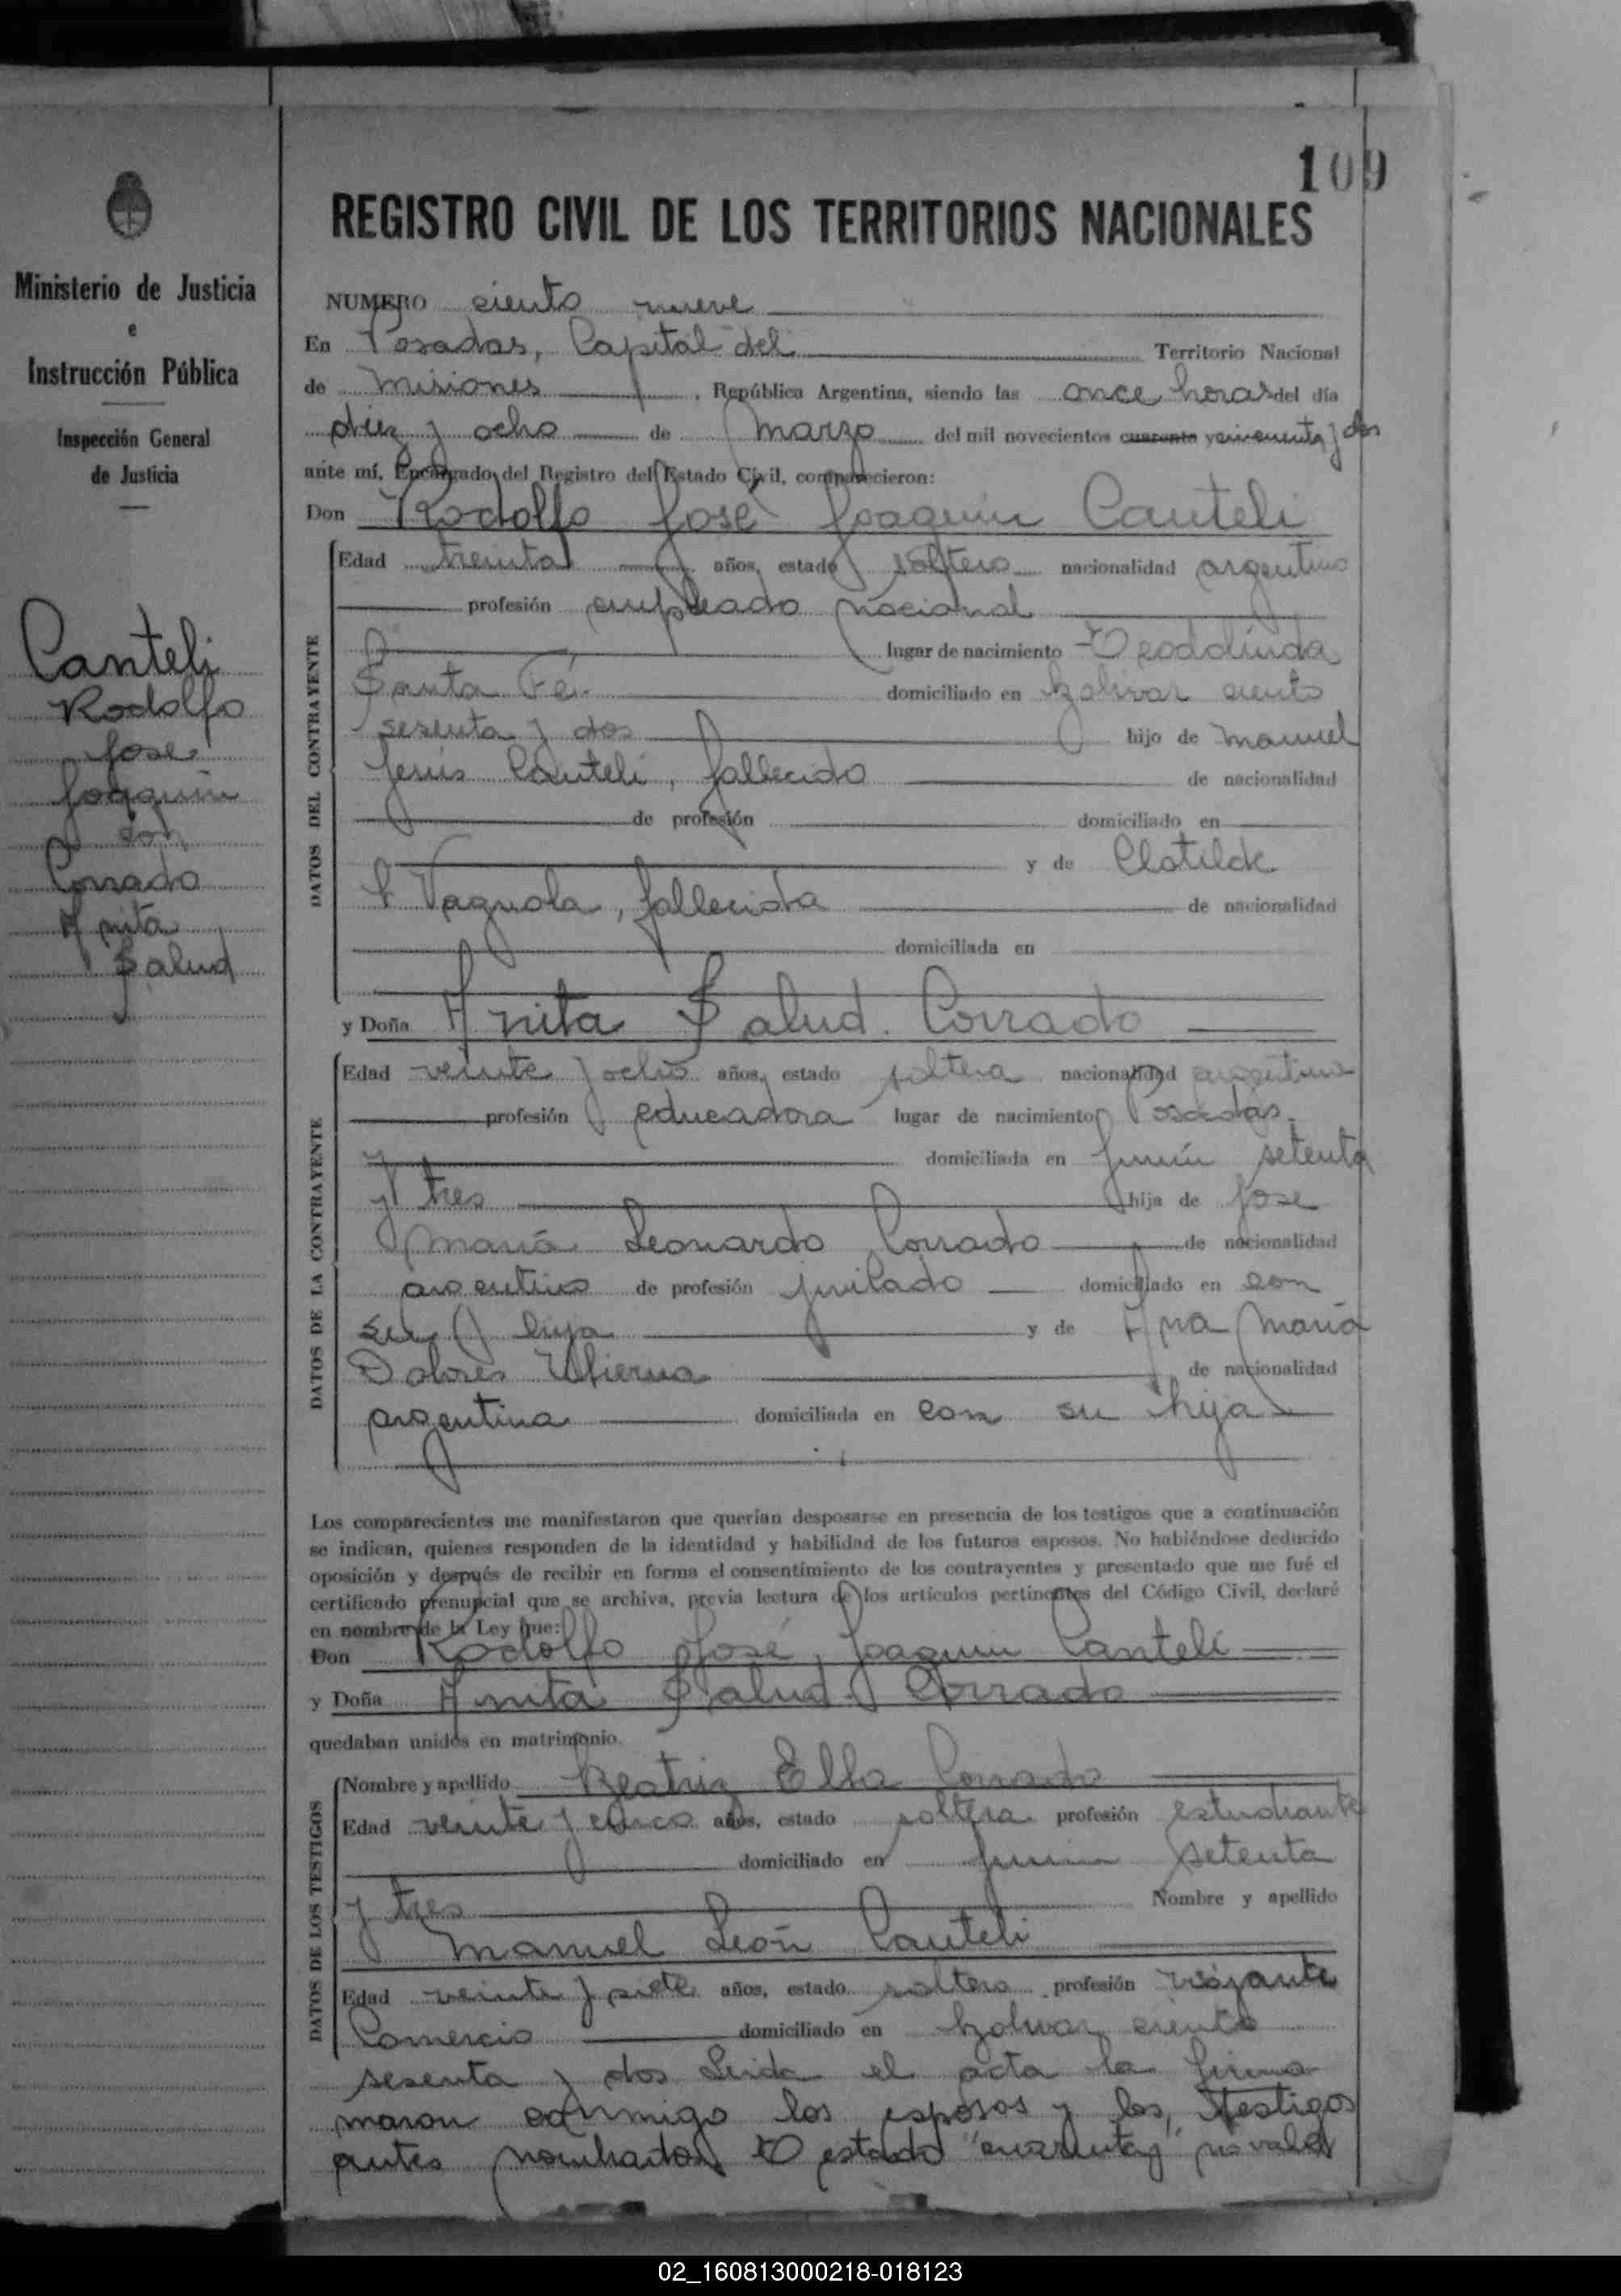 109
Ministerio de Justicia
e
Instrucción Pública
Inspección General
de Justicia
Canteli
Rodolfo
José
Joaquin
con
Corrado
Anita
Salud
REGISTRO CIVIL DE LOS TERRITORIOS NACIONALES
NUMERO ciento nueve
En Posadas, Capital del Territorio Nacional
de Misiones, República Argentina, siendo las once horas del día
diez y ocho de Marzo del mil novecientos cuarenta y cincuenta y dos
ante mí, Encargado del Registro del Estado Civil, comparecieron:
Don Rodolfo José Joaquin Canteli
DATOS DEL CONTRAYENTE
Edad treinta años, estado soltero nacionalidad argentino
profesión empleado nacional
lugar de nacimiento Teodolinda
Santa Fé. domiciliado en Bolivar ciento
sesenta y dos hijo de Manuel
Jesús Canteli, fallecido de nacionalidad
de profesión domiciliado en
y de Clotilde
Vagnola, fallecida de nacionalidad
domiciliada en
y Doña Anita Salud Corrado
DATOS DE LA CONTRAYENTE
Edad veinte y ocho años, estado soltera nacionalidad argentina
profesión educadora lugar de nacimiento Posadas.
domiciliada en Junín setenta
y tres hija de José
María Leonardo Corrado de nacionalidad
argentino de profesión jubilado domiciliado en con
su hija y de Ana María
Dolores de nacionalidad
argentina domiciliada en con su hija
Los comparecientes me manifestaron que querían desposarse en presencia de los testigos que a continuación
se indican, quienes responden de la identidad y habilidad de los futuros esposos. No habiéndose deducido
oposición y después de recibir en forma el consentimiento de los contrayentes y presentado que me fué el
certificado prenupcial que se archiva, previa lectura de los artículos pertinentes del Código Civil, declaré
en nombre de la Ley que:
Don Rodolfo José Joaquin Canteli
y Doña Anita Salud Corrado
quedaban unidos en matrimonio.
DATOS DE LOS TESTIGOS
Nombre y apellido Beatriz Elba Corrado
Edad veinte y cinco años, estado soltera profesión estudiante
domiciliado en Junin setenta
y tres Nombre y apellido
Manuel León Canteli
Edad veinte y siete años, estado soltero profesión viajante
Comercio domiciliado en Bolivar ciento
sesenta y dos Leida el acta la firma
maron conmigo los esposos y los testigos
antes nombrados. Testado "cuarenta y" no vale
02_160813000218-018123